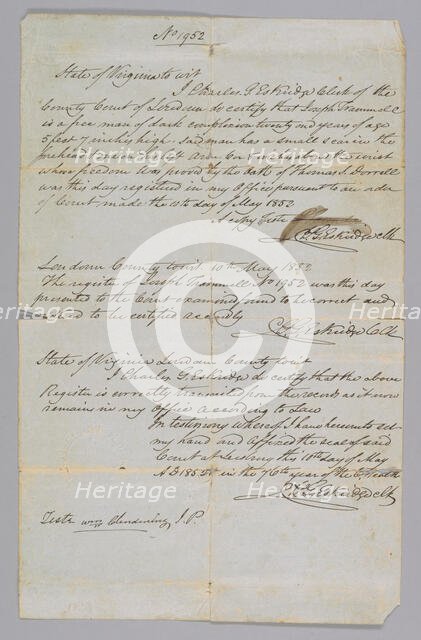 No 1952
State of Virginia to wit
I Charles G Eskridge Clerk of the
County Court of Loudoun do certify that Joseph Trammell
is a free man of dark complexion twenty one years of age
5 feet 7 inches high. Said man has a small scar in the
right arm on near the wrist
whose freedom was proved by the oath of Thomas J. Dorrell
was this day registered in my Office pursuant to an order
of Court made the 10th day of May 1852
A copy Teste
Ch G Eskridge Clk
Loudoun County to wit. 10th May 1852
The register of Joseph Trammell No 1952 was this day
presented to the Court examined found to be correct and
ordered to be certified accordly
Ch G Eskridge Clk
State of Virginia Loudoun County to wit
I Charles G Eskridge do certify that the above
Register is correctly transcribed from the record as it now
remains in my Office according to Law
In testimony whereof I have hereunto set
my hand and affixed the seal of said
Court at Leesburg this 10th day of May
AD 1852 in the 76th year of the
Ch G Eskridge Clk
Teste Wm Clendening J.P.
Heritage Heritage
Heritage Heritage
Images Images
Heritage Heritage
Images Images